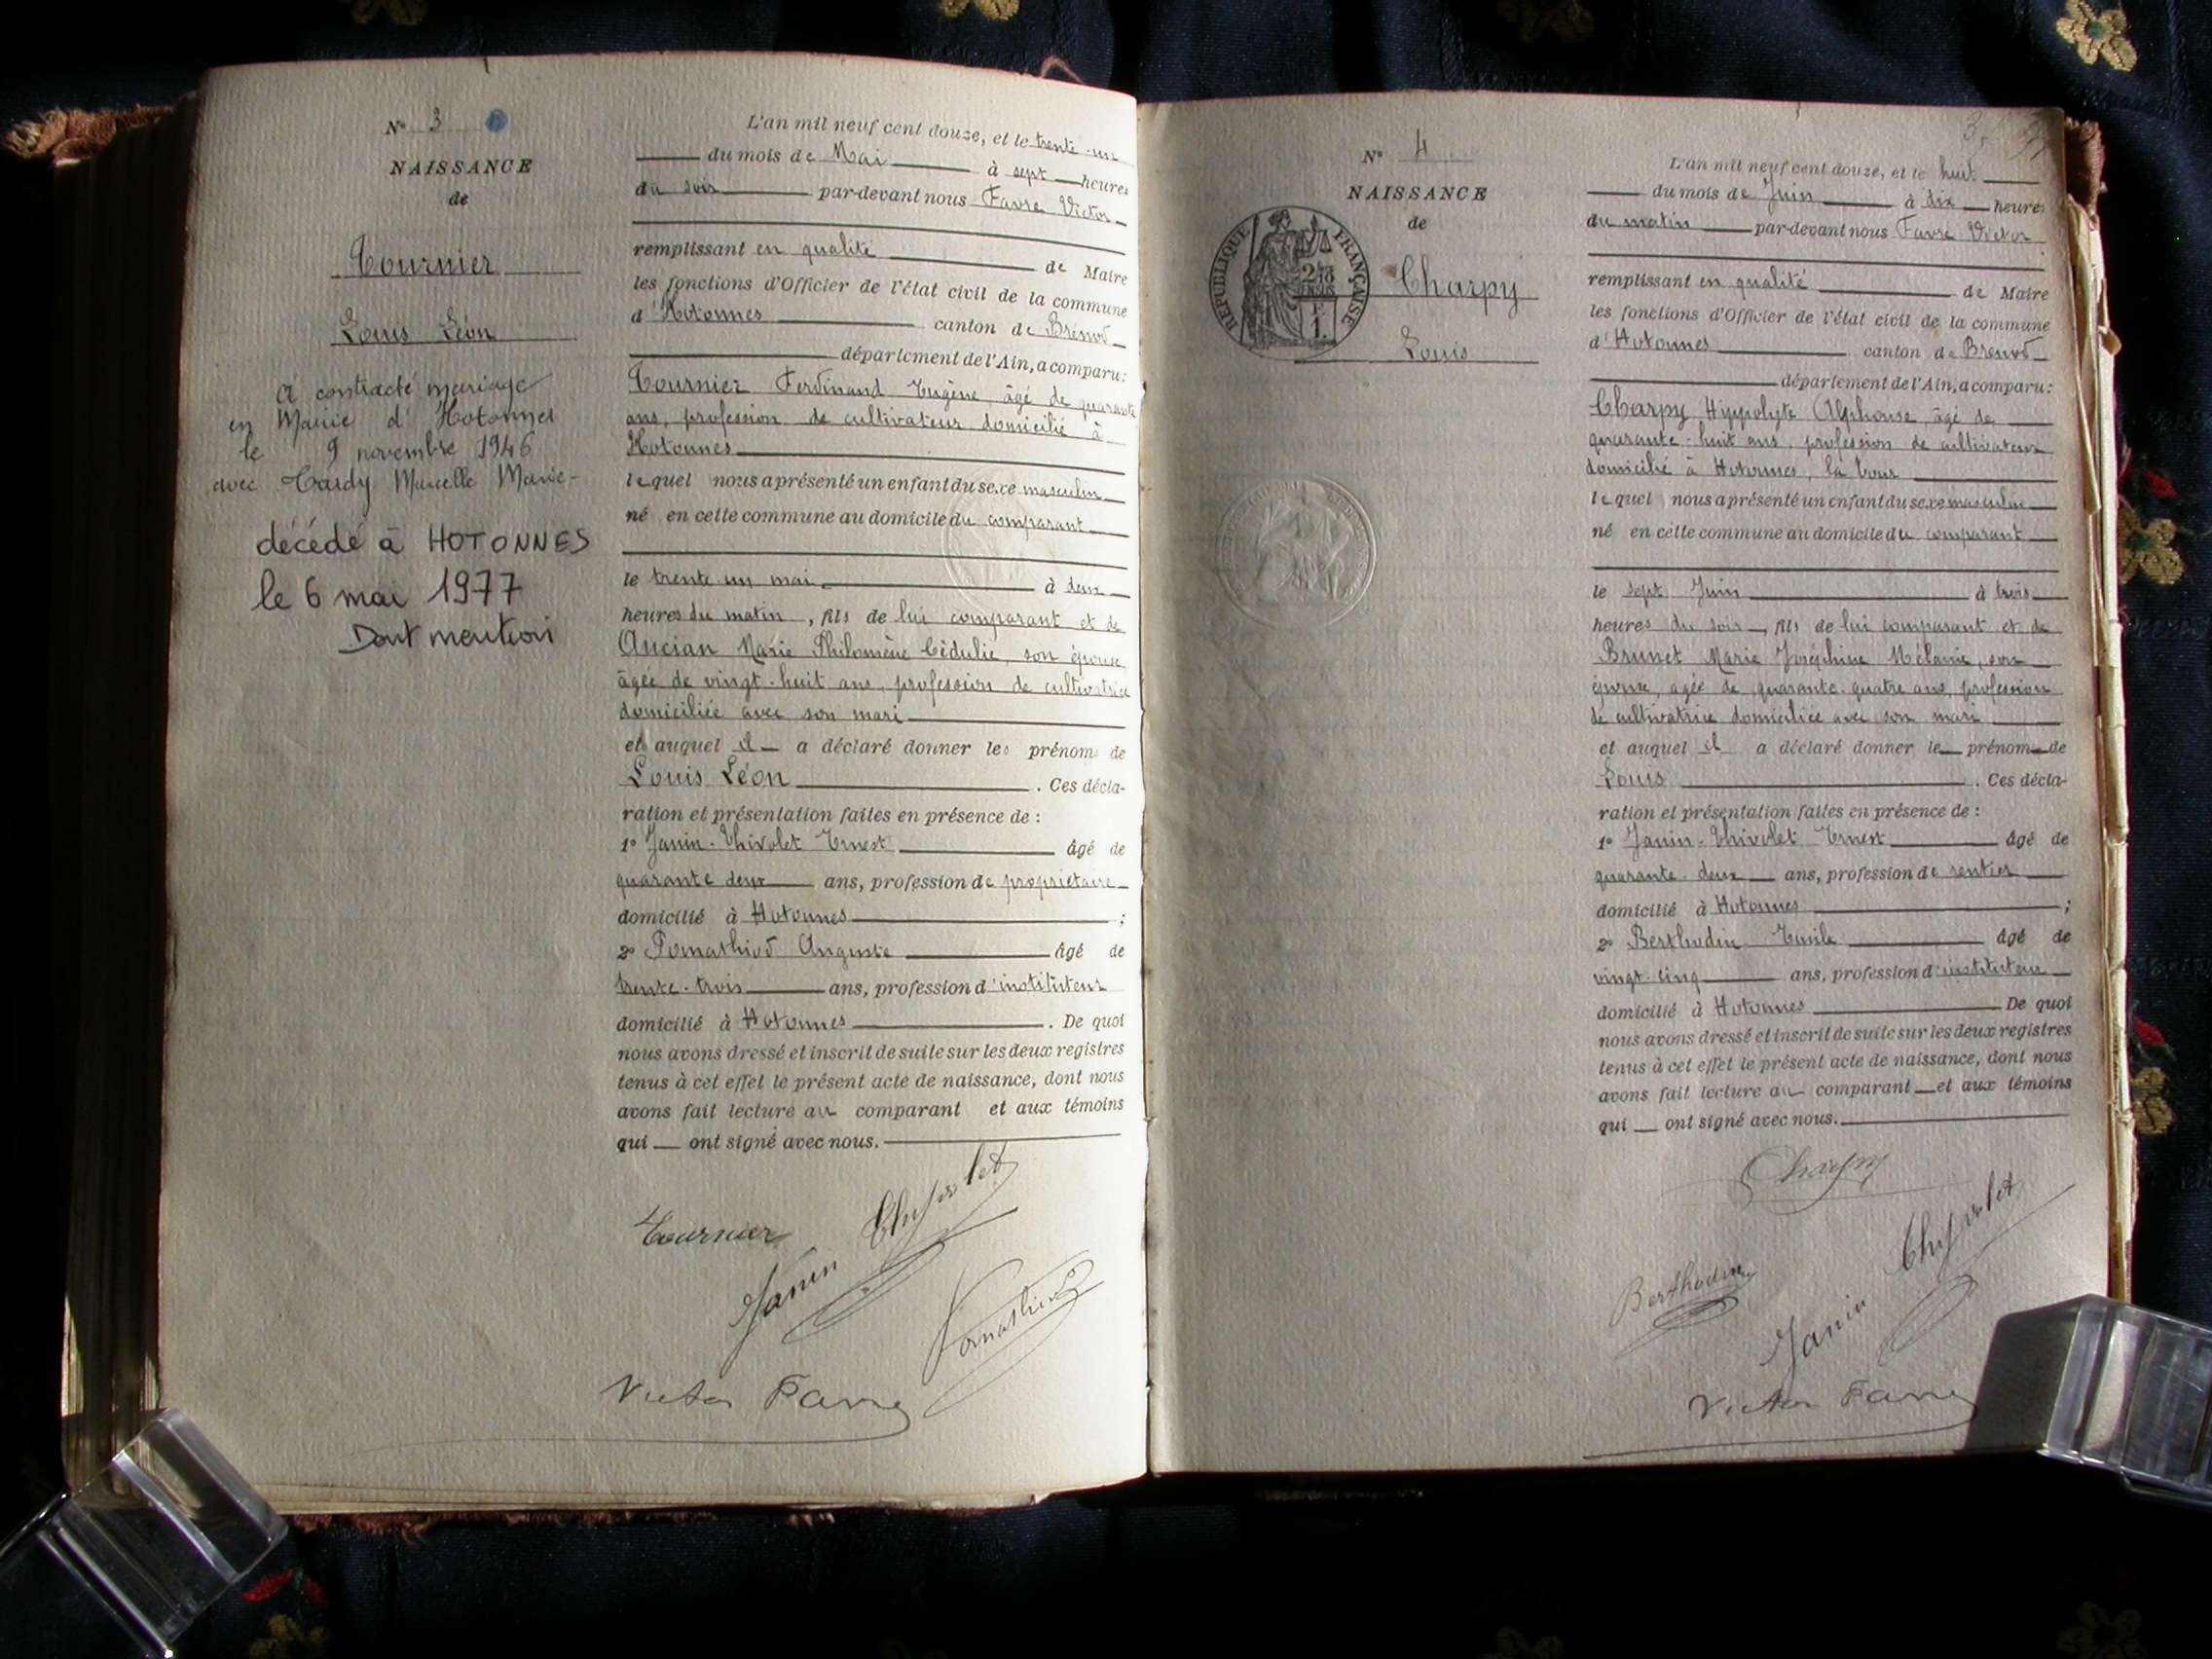 N° 3
NAISSANCE
de
Tournier
Louis Léon
A contracté mariage
en Mairie d'Hotonnes
le 9 novembre 1946
avec Tardy Marcelle Marie-
décédé à HOTONNES
le 6 mai 1977
Dont mention
L'an mil neuf cent douze, et le trente-un
du mois de Mai à sept heures
du soir par-devant nous Favre Victor
remplissant en qualité de Maire
les fonctions d'Officier de l'état civil de la commune
d'Hotonnes canton de Brénod
département de l'Ain, a comparu:
Tournier Ferdinand Eugène, âgé de quarante
ans, profession de cultivateur domicilié à
Hotonnes
lequel nous a présenté un enfant du sexe masculin
né en cette commune au domicile du comparant
le trente-un mai à deux
heures du matin, fils de lui comparant et de
Ancian Marie Philomène Cédulie, son épouse
âgée de vingt-huit ans, profession de cultivatrice
domiciliée avec son mari
et auquel il a déclaré donner les prénoms de
Louis Léon. Ces décla-
ration et présentation faites en présence de :
1° Janin-Thivolet Ernest âgé de
quarante deux ans, profession de propriétaire
domicilié à Hotonnes ;
2° Pomathiod Auguste âgé de
trente-trois ans, profession d'instituteur
domicilié à Hotonnes. De quoi
nous avons dressé et inscrit de suite sur les deux registres
tenus à cet effet le présent acte de naissance, dont nous
avons fait lecture au comparant et aux témoins
qui ont signé avec nous.
Tournier
Janin Thivolet
Pomathiod
Victor Favre
N° 4
NAISSANCE
de
RÉPUBLIQUE FRANÇAISE
Charpy
Louis
L'an mil neuf cent douze, et le huit
du mois de Juin à dix heures
du matin par-devant nous Favre Victor
remplissant en qualité de Maire
les fonctions d'Officier de l'état civil de la commune
d'Hotonnes canton de Brenod
département de l'Ain, a comparu:
Charpy Hippolyte Alphonse, âgé de
quarante-huit ans, profession de cultivateur
domicilié à Hotonnes, la
lequel nous a présenté un enfant du sexe masculin
né en cette commune au domicile du comparant
le sept Juin à trois
heures du soir, fils de lui comparant et de
Brunet Marie Joséphine Mélanie, son
épouse, agée de quarante-quatre ans, profession
de cultivatrice domiciliée avec son mari
et auquel il a déclaré donner le prénom de
Louis. Ces décla-
ration et présentation faites en présence de :
1° Janin-Thivolet Ernest âgé de
quarante-deux ans, profession de rentier
domicilié à Hotonnes ;
2° Berthodin Emile âgé de
vingt-cinq ans, profession d'instituteur
domicilié à Hotonnes De quoi
nous avons dressé et inscrit de suite sur les deux registres
tenus à cet effet le présent acte de naissance, dont nous
avons fait lecture au comparant et aux témoins
qui ont signé avec nous.
Charpy
Berthodin
Janin Thivolet
Victor Favre